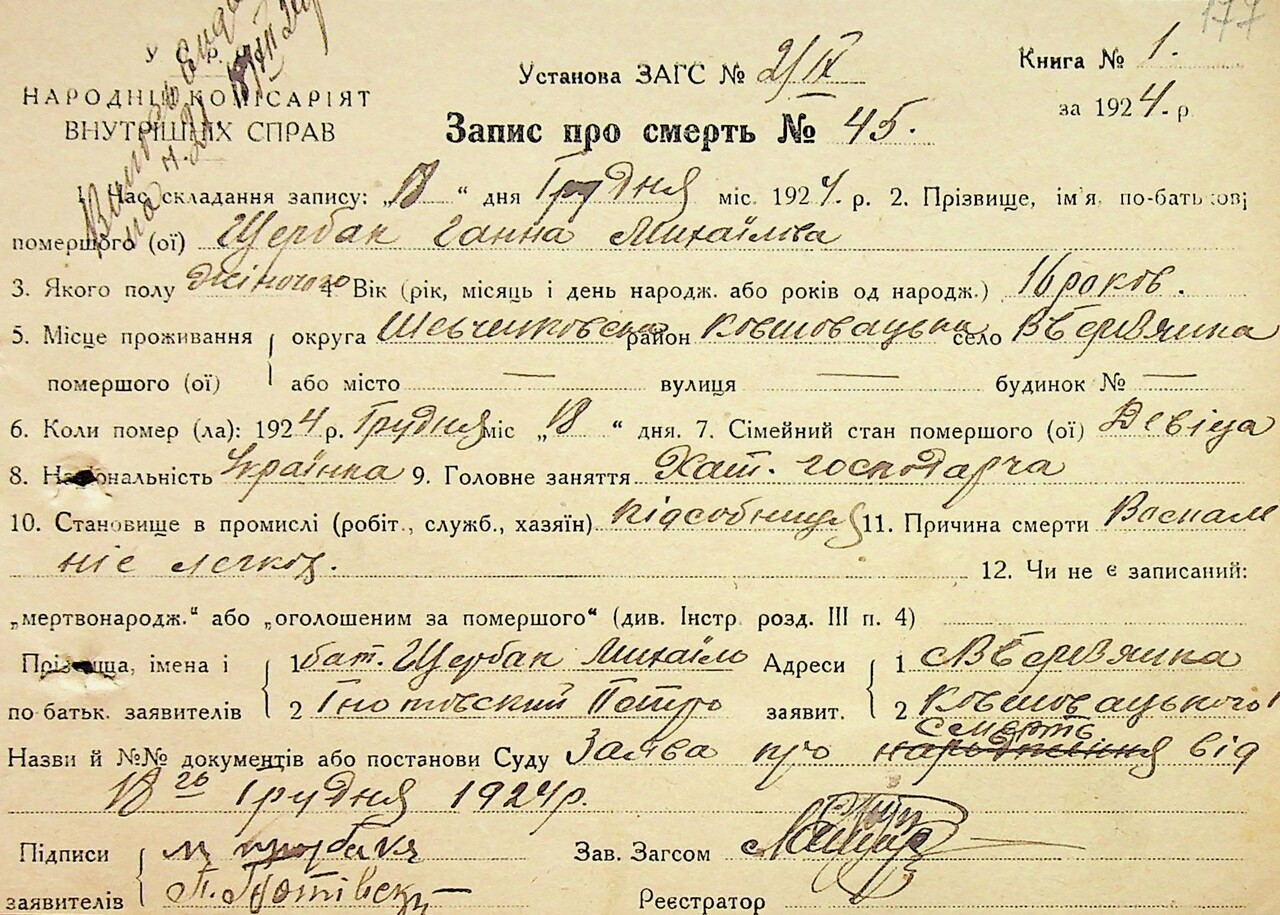 177
У. С. Р. Р.
НАРОДНІЙ КОМІСАРІЯТ
ВНУТРІШНІХ СПРАВ
Установа ЗАГС № 2/ІХ
Книга № 1.
за 1924. р.
Запис про смерть № 45.
1. Час складання запису: „18“ дня Грудня міс. 1924. р. 2. Прізвище, ім'я, по-батькові
помершого (ої) Щербак Ганна Михаїліва
3. Якого полу жіночого 4. Вік (рік, місяць і день народж. або років од народж.) 16 роков.
5. Місце проживання округа Шевченковська район Ковшовацька село Вбервянка
помершого (ої) або місто — вулиця — будинок № —
6. Коли помер (ла): 1924 р. Грудня міс „18“ дня. 7. Сімейний стан помершого (ої) Девіца
8. Національність Українка 9. Головне заняття Хат. господарча
10. Становище в промислі (робіт., служб., хазяїн) підсобниця 11. Причина смерти Воспале
ніє легких.
12. Чи не є записаний:
„мертвонародж.“ або „оголошеним за помершого“ (див. Інстр. розд. III п. 4)
Прізвища, імена і 1 бат. Щербак Михаїло Адреси 1 с Вбервянка
по батьк. заявителів 2 Гнотовский Петро заявит. 2 Ковшовацького
смерть
Назви й №№ документів або постанови Суду Заява про народження від
18го Грудня 1924 р.
Підписи м щербак Зав. Загсом
заявителів П. Реєстратор